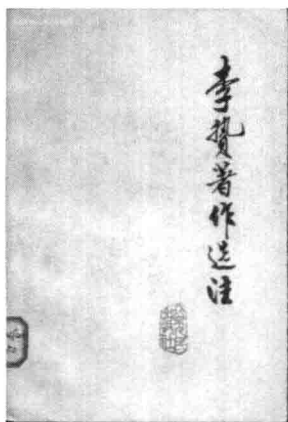 李贽著作选注